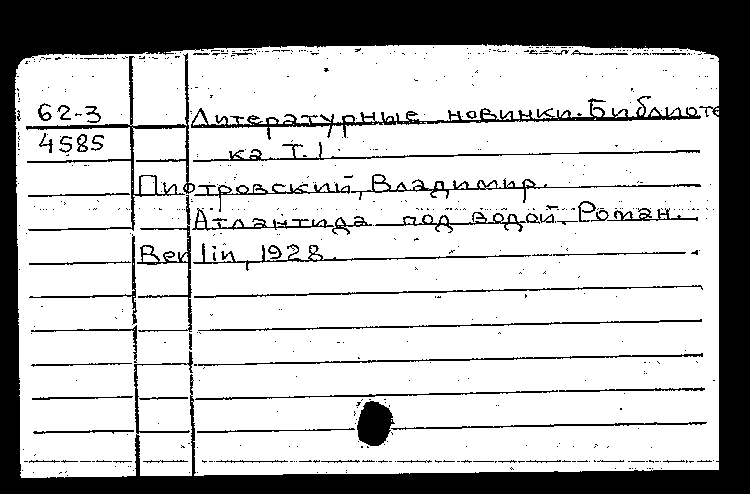 62-3 Литературные новинки. Библиоте
4585 ка Т. 1.
Пиотровский, Владимир.
Атлантида под водой. Роман.
Berlin, 1928.